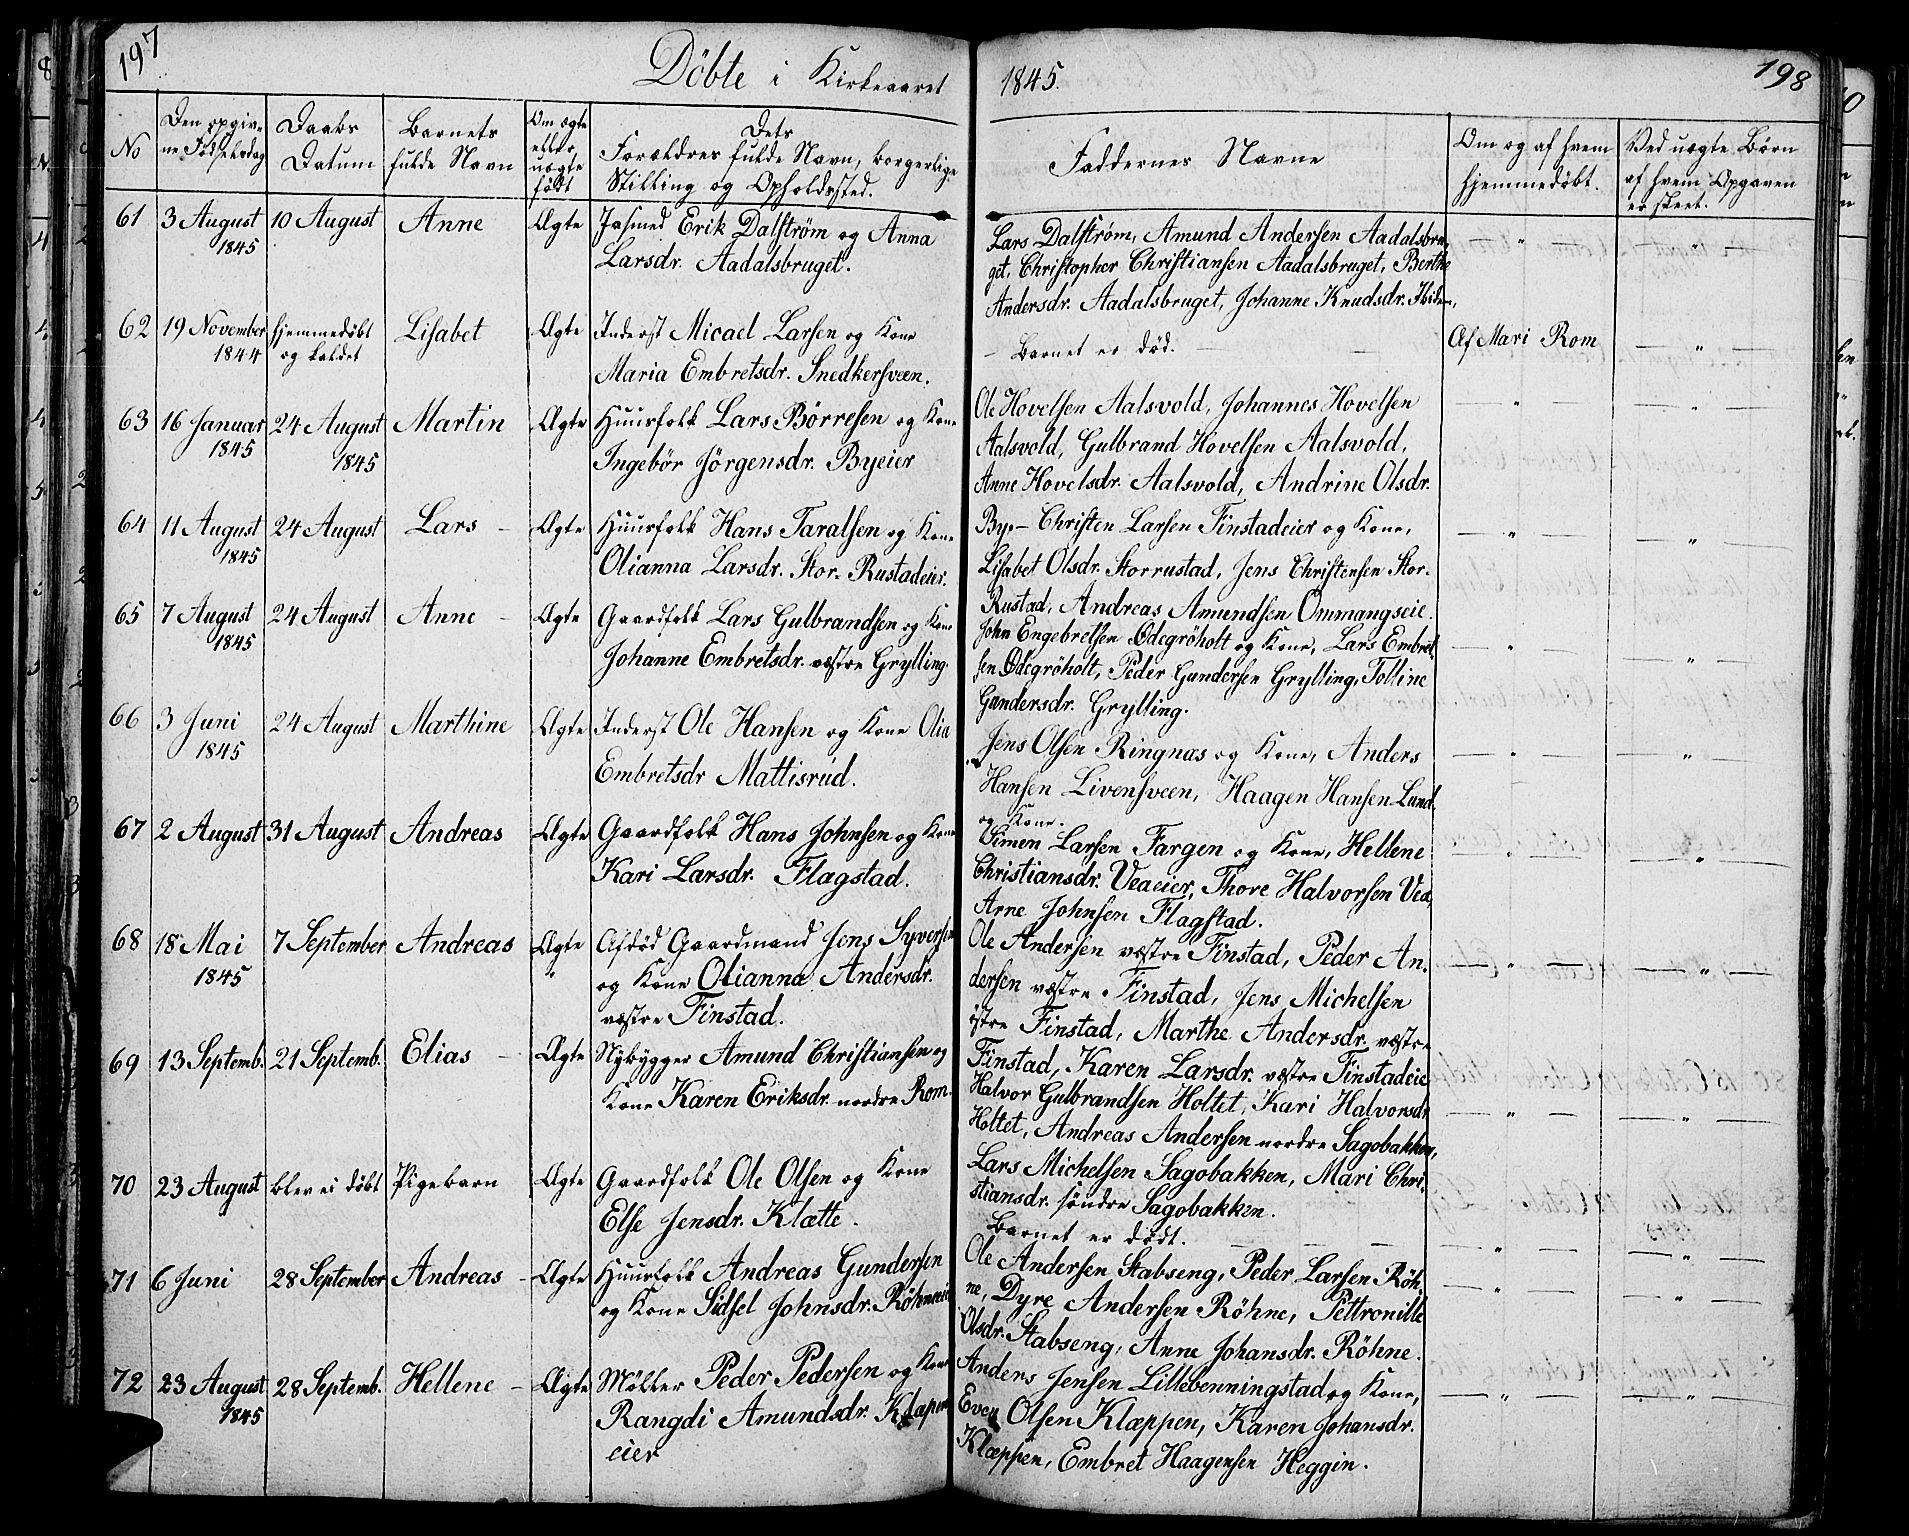 197
Döbte i Kirkeaaret
1845.
198
No
Den opgiv-
ne Fødselsdag
Daabs
Datum
Barnets
fulde Navn
Om ægte
eller
uægte
født
Dets
Forældres fulde Navn, borgerlige
Stilling og Opholdssted.
Faddernes Navne
Om og af hvem
hjemmedøbt.
Ved uægte Børn
af hvem Opgaven
er skeet.
61 3 August 10 August Anne Ægte Erik Dalstrøm og Anna
1845
Larsdr. Aadalsbruget.
Lars Dalstrøm, Amund Andersen Aadalsbru-
get, Christopher Christiansen Aadalsbruget, Berthe
Andersdr. Aadalsbruget, Johanne Knudsdr. Ibidem.
62 19 November hjemmedøbt Lisabet Ægte Inderst Micael Larsen og Kone
1844 og kaldet
Maria Embretsdr. Snedkersveen.
– Barnet er død. –
Af Mari Rom
63 16 Januar 24 August Martin Ægte Huusfolk Lars Börresen og Kone
1845 1845
Ingebör Jörgensdr. Byeier
Ole Hovelsen Aalsvold, Johannes Hovelsen
Aalsvold, Gulbrand Hovelsen Aalsvold,
Anne Hovelsdr. Aalsvold, Andrine Olsdr.
By.–
64 11 August 24 August Lars – Ægte Huusfolk Hans Taralsen og Kone
1845
Olianna Larsdr. Stor-Rustadeier.
Christen Larsen Finstadeier og Kone,
Lisabet Olsdr. Storrustad, Jens Christensen Stor-
Rustad, Andreas Amundsen Ommangseie.
65 7 August 24 August Anne – Ægte Gaardfolk Lars Gulbrandsen og Kone
1845
Johanne Embretsdr. vestre Grylling.
John Engebretsen Ödegröholt og Kone, Lars Embret-
sen Ödegröholt, Peder Gundersen Grylling, Tolline
Gundersdr. Grylling.
66 3 Juni 24 August Marthine Ægte Inderst Ole Hansen og Kone Olia
1845
Embretsdr Mattisrud.
Jens Olsen Ringnæs og Kone, Anders
Hansen Livensveen, Haagen Hansen Lund
og Kone.
67 2 August 31 August Andreas Ægte Gaardfolk Hans Johnsen og Kone
Kari Larsdr. Flagstad.
Simen Larsen Fargen og Kone, Hellene
Christiansdr. Veaeier, Thore Halvorsen Vea,
Arne Johnsen Flagstad.
68 18 Mai 7 September Andreas Ægte Afdöd Gaardmand Jens Syversen
1845
og Kone Olianna Andersdr.
vestre Finstad.
Ole Andersen vestre Finstad, Peder An-
dersen vestre Finstad, Jens Michelsen
östre Finstad, Marthe Andersdr. vestre
Finstad, Karen Larsdr. vestre Finstadeie
69 13 Septemb. 21 Septemb. Elias – Ægte Nybygger Amund Christiansen og
Kone Karen Eriksdr. nordre Rom.
Halvor Gulbrandsen Holtet, Kari Halvorsdr
Holtet, Andreas Andersen nordre Sagobakken,
Lars Michelsen Sagobakken, Mari Chri-
stiansdr. söndre Sagobakken.
70 23 August blev ei döbt Pigebarn Ægte Gaardfolk Ole Olsen og Kone
Else Jensdr. Klætte.
Barnet er dödt.
71 6 Juni 28 September Andreas – Ægte Huusfolk Andreas Gundersen
og Kone Sidsel Johnsdr. Röhneeie
Ole Andersen Stabseng, Peder Larsen Röh-
ne, Dyre Andersen Röhne, Pettronille
Olsdr. Stabseng, Anne Johansdr. Röhne.
72 23 August 28 Septemb. Hellene – Ægte Möller Peder Pedersen og Kone
1845
Rangdi Amundsdr. Klæpen
eier
Anders Jensen Lillebenningstad og Kone,
Even Olsen Klæppen, Karen Johansdr.
Klæppen, Embret Haagensen Heggin.